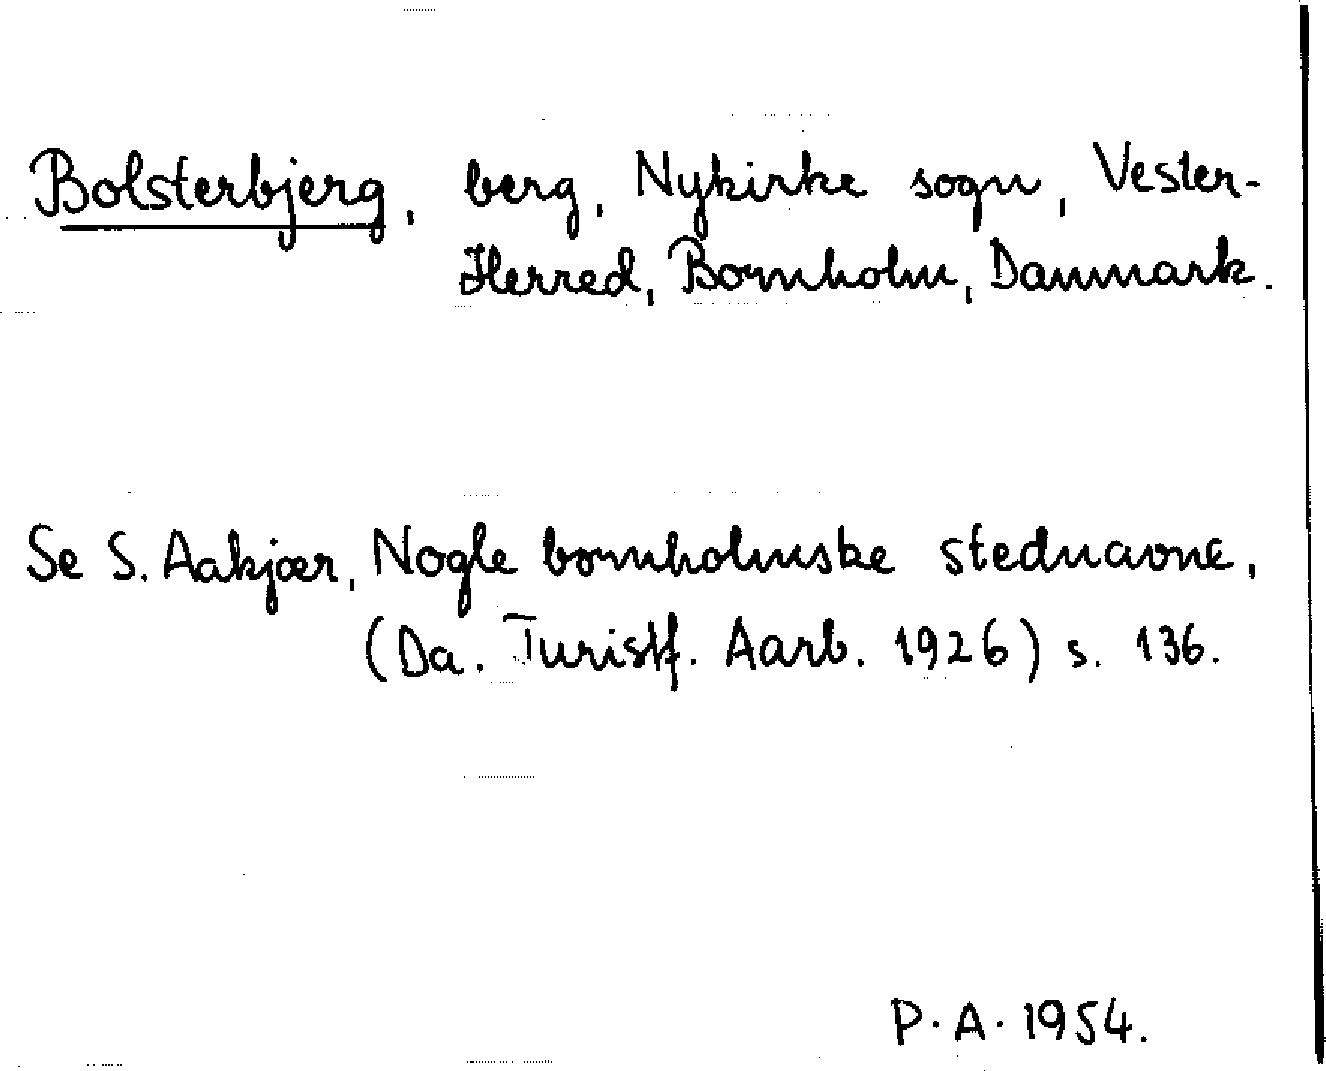 Bolsterbjerg, berg, Nykirke sogn, Vester-
Herred, Bornholm, Danmark.
Se S. Aakjær, Nogle bornholmske stednavne,
(Da. Turistf. Aarb. 1926) s. 136.
P. A. 1954.